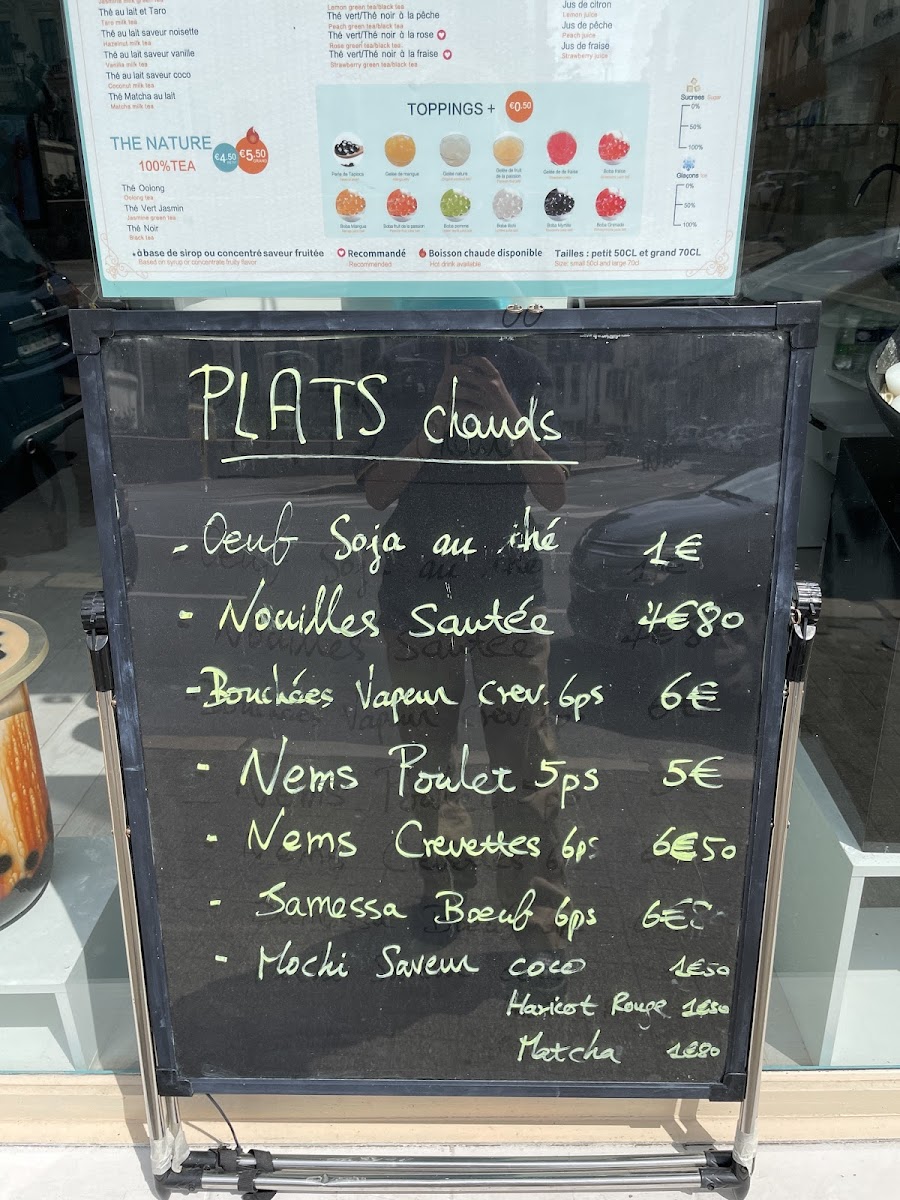 Thé au lait et Taro
Taro milk tea
Thé au lait saveur noisette
Hazelnut milk tea
Thé au lait saveur vanille
Vanilla milk tea
Thé au lait saveur coco
Coconut milk tea
Thé Matcha au lait
Matcha milk tea
Lemon green tea/black tea
Thé vert/Thé noir à la pêche
Peach green tea/black tea
Thé vert/Thé noir à la rose
Rose green tea/black tea
Thé vert/Thé noir à la fraise
Strawberry green tea/black tea
Jus de citron
Lemon juice
Jus de pêche
Peach juice
Jus de fraise
Strawberry juice
THE NATURE
100%TEA
€4.50
€5.50
Thé Oolong
Oolong tea
Thé Vert Jasmin
Jasmine green tea
Thé Noir
Black tea
TOPPINGS + €0.50
Perle de Tapioca
Gelée de mangue
Gelée nature
Gelée de fruit de la passion
Gelée de de fraise
Boba fraise
Boba Mangue
Boba fruit de la passion
Boba pomme
Boba litchi
Boba Myrtille
Boba Grenade
Sucrées Sugar
0%
50%
100%
Glaçons Ice
0%
50%
100%
* à base de sirop ou concentré saveur fruitée
Based on syrup or concentrate fruity flavor
Recommandé
Recommended
Boisson chaude disponible
Hot drink available
Tailles : petit 50CL et grand 70CL
Size: small 50cl and large 70cl
PLATS chauds
- Oeuf Soja au thé 1€
- Nouilles Sautée 4€80
- Bouchées Vapeur Crev. 6ps 6€
- Nems Poulet 5ps 5€
- Nems Crevettes 6ps 6€50
- Samossa Bœuf 6ps
- Mochi Saveur coco 1€50
Haricot Rouge 1€50
Matcha 1€80